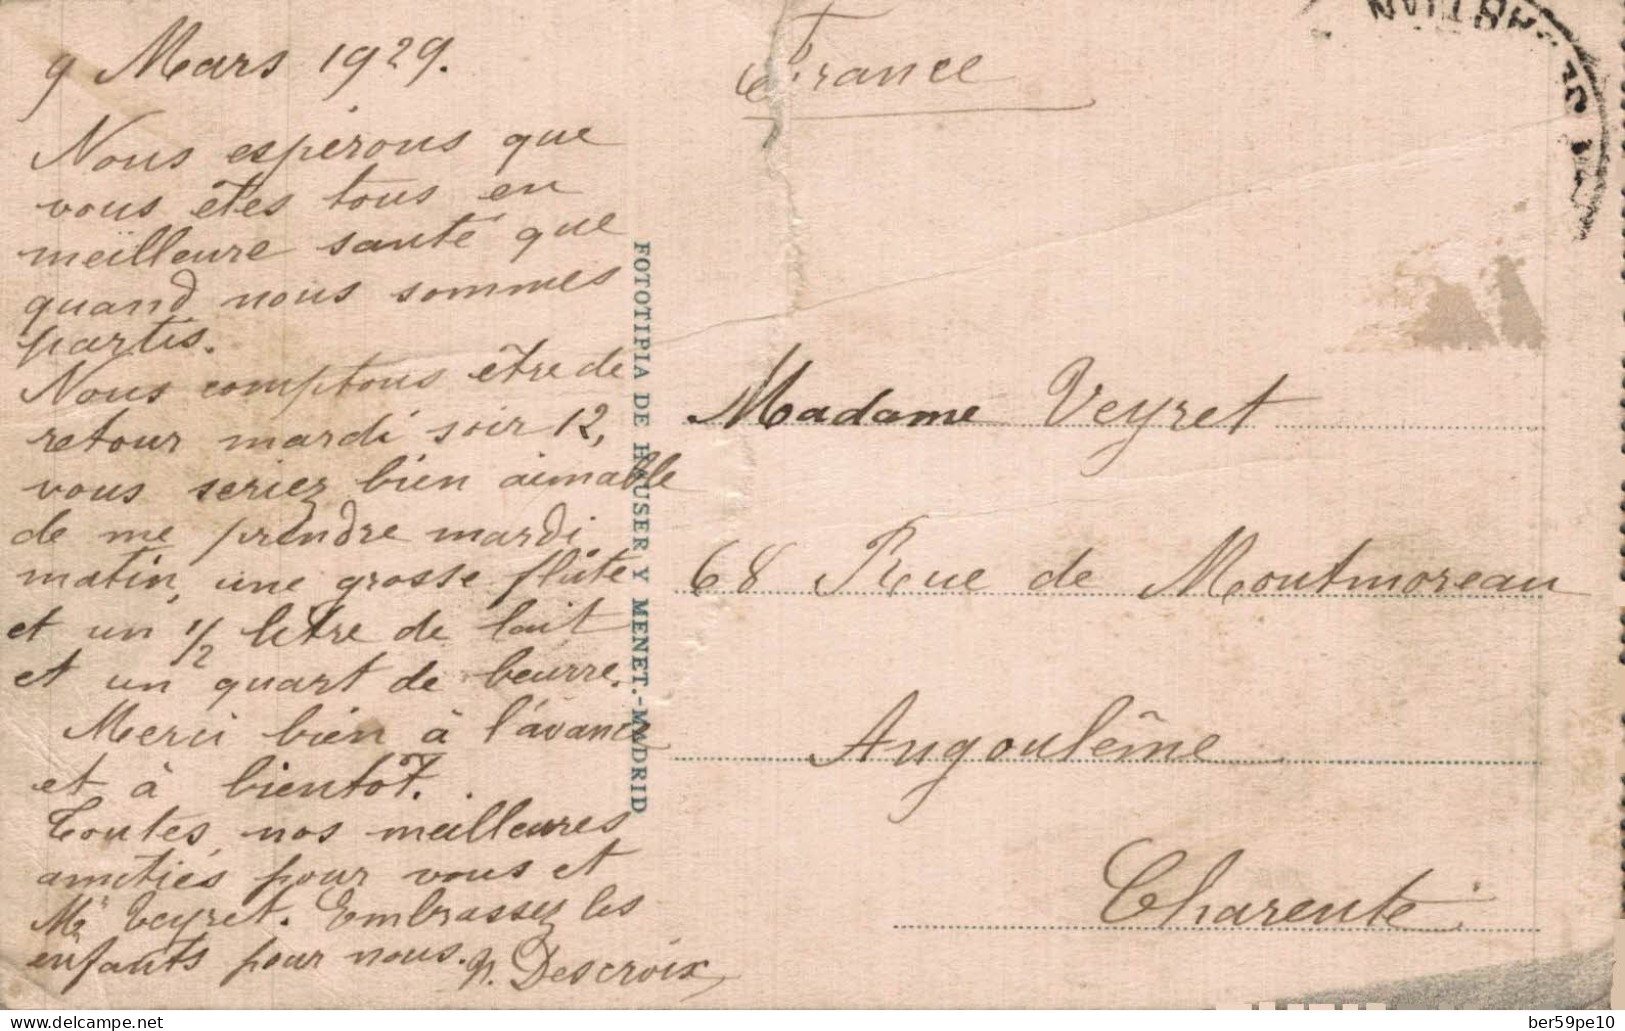 9 Mars 1929.
Nous espérons que
vous êtes tous en
meilleure santé que
quand nous sommes
partis.
Nous comptons être de
retour mardi soir 12,
vous seriez bien aimable
de me prendre mardi
matin, une grosse flûte
et un 1/2 litre de lait
et un quart de beurre.
Merci bien à l'avance
et à bientôt.
Toutes nos meilleures
amitiés pour vous et
Mr Veyret. Embrassez les
enfants pour nous.
N. Descroix
FOTOTIPIA DE HAUSER Y MENET.-MADRID
France
Madame Veyret
68 Rue de Montmoreau
Angoulême
Charente
delcampe.net
ber59pe10